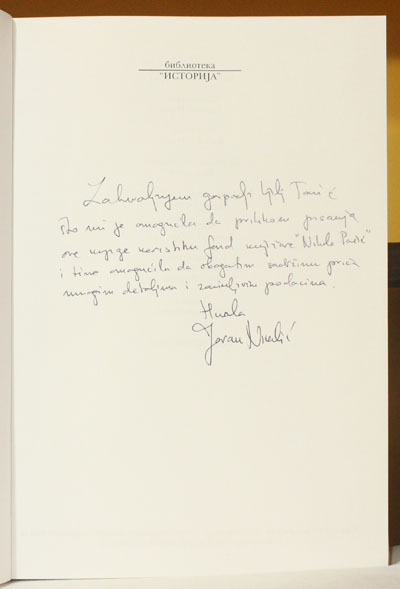 библиотека
"ИСТОРИЈА"
Zahvaljujem gospođi Ljilji Tomić
što mi je omogućila da prilikom pisanja
ove knjige koristim fond knjižare "Nikola Pašić"
i time omogućila da obogatim sadržinu priča
mnogim detaljima i zanimljivim podacima.
Hvala
Jovan